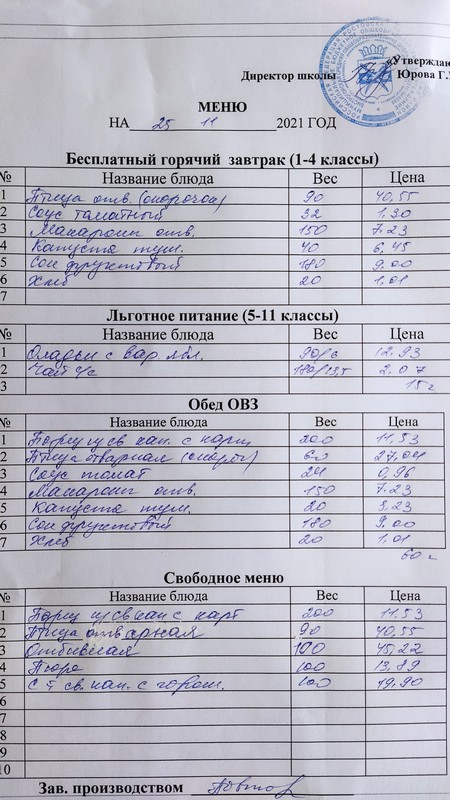 «Утверждаю
Директор школы Юрова Г.
МЕНЮ
НА 25 11 2021 ГОД
Бесплатный горячий завтрак (1-4 классы)
№ Название блюда Вес Цена
1 Птица отв. (окорочка) 90 40,55
2 Соус томатный 32 1,30
3 Макароны отв. 150 7.23
4 Капуста туш. 40 6,45
5 Сок фруктовый 180 9.00
6 Хлеб 20 1,01
7
Льготное питание (5-11 классы)
№ Название блюда Вес Цена
1 Оладьи с вар. ябл. 90/6 12.93
2 Чай с/с 180/13,5 2.07
3 15
Обед ОВЗ
№ Название блюда Вес Цена
1 Борщ из св кап. с карт. 200 11,53
2 Птица отварная 60 27,04
3 Соус томат 24 0,96
4 Макароны отв. 150 7.23
5 Капуста туш. 20 3,23
6 Сок фруктовый 180 9.00
7 Хлеб 20 1,01
60
Свободное меню
№ Название блюда Вес Цена
1 Борщ из св кап с карт 200 11,53
2 Птица отварная 90 40,55
3 Отбивная 100 45,22
4 Пюре 100 13,89
5 С-т св. кап. с горош. 100 19,90
6
7
8
9
10
Зав. производством